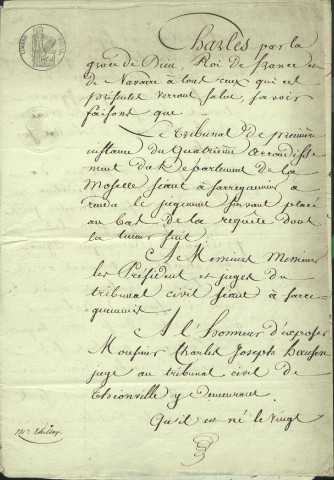 Charles par la
grace de Dieu, Roi de france et
de Navarre a tout ceux qui ces
presentes verront salut, savoir
faisons que
Le Tribunal de premiere
instance du Quatrième arrondisse
ment du Departement de la
Moselle séant à sarreguemines a
rendu le jugement suivant placé
au bas de la requête dont
la teneur suit
A Messieurs Messieurs
les Président et juges du
tribunal civil séant à sarre
guemines
A l'honneur d'exposer
Monsieur Charles Joseph
juge au tribunal civil de
Thionville y demeurant
Qu'il est né le vingt